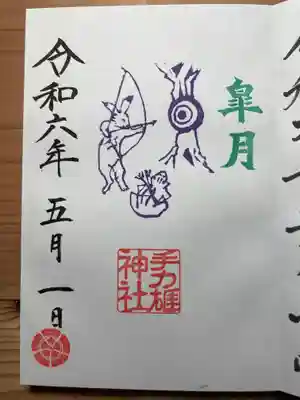 皐月
手力雄
神社
令和六年 五月 一日